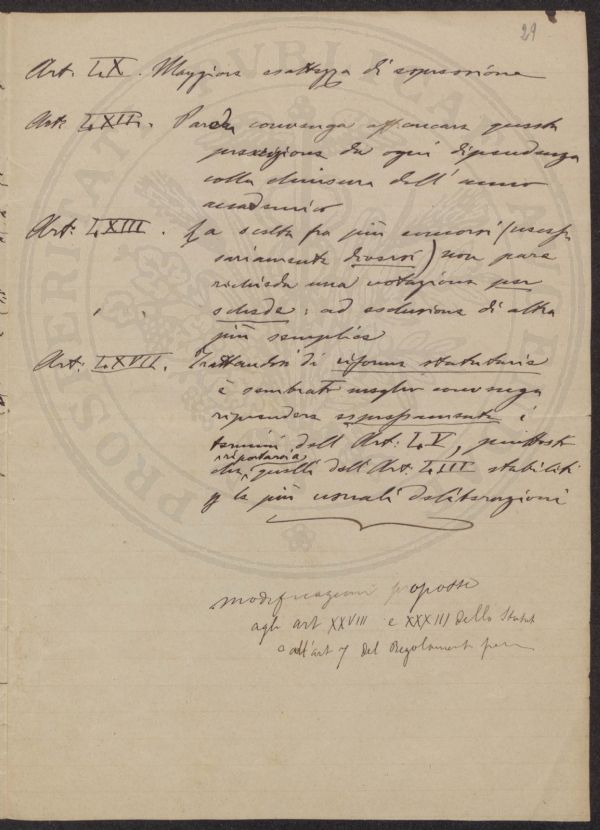 29
Art. LX. Maggiore esattezza di espressione
Art: LXII. Pare convenga affrancare questa
prescrizione da ogni dipendenza
colla chiusura dell' anno
accademico
Art: LXIII. La scelta fra più concorsi (neces
sariamente diversi) non pare
richieda una votazione per
schede: ad esclusione di altra
più semplice
Art: LXVII. Trattandosi di riforma statutaria
è sembrato meglio convenga
riprendere espressamente i
termini dell' Art: LV, piuttosto
riportarsi a
che quelli dell' Art: LIII stabiliti
p le più usuali deliberazioni
modificazioni proposte
agli art XXVIII e XXXIII dello Statut
all'art 7 del Regolamento
PROSPERITATI PVBLICAE